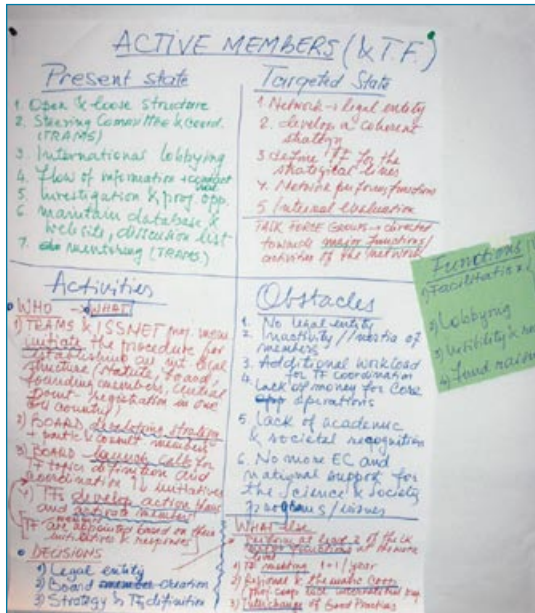 ACTIVE MEMBERS (& T.F.)
Present state
1. Open & loose structure
2. Steering Committee & Coord.
(TRAMS)
3. International lobbying
4. Flow of information + contact
5. Investigation & prof. opp.
6. maintain database &
website, discussion list
7. mentoring (TRAMS)
Targeted State
1. Network → legal entity
2. develop a coherent
strategy
3. define TF for the
strategical lines
4. Network performs functions
5. Internal evaluation
TASK FORCE GROUPS → directed
towards major functions/
activities of the network
Activities
WHO → WHAT
1) TRAMS & ISSNET
initiate the procedure for
establishing
structure (statute, board,
founding members, central
point - registration in one
EU country)
2) BOARD developing strategy
+ consult members
3) BOARD launch calls for
TF topics definition and
coordination initiatives
4) TFs develop action plans
and activate members
[TF are appointed based on their
initiatives & responses]
DECISIONS
1) Legal entity
2) Board creation
3) Strategy & TF definition
Obstacles
1. No legal entity
2. Inactivity / inertia of
members
3. Additional workload
for TF coordination
4. Lack of money for core
operations
5. Lack of academic
& societal recognition
6. No more EC and
national support for
the Science & Society
programs/issues
WHAT ELSE
at least 2 of the
major functions at the
level
2) TF meeting 1+1/year
3) Regional & thematic coop.
4) Interchange of Good Practices
Functions
1) Facilitation
2) Lobbying
3) Visibility &
4) Fund